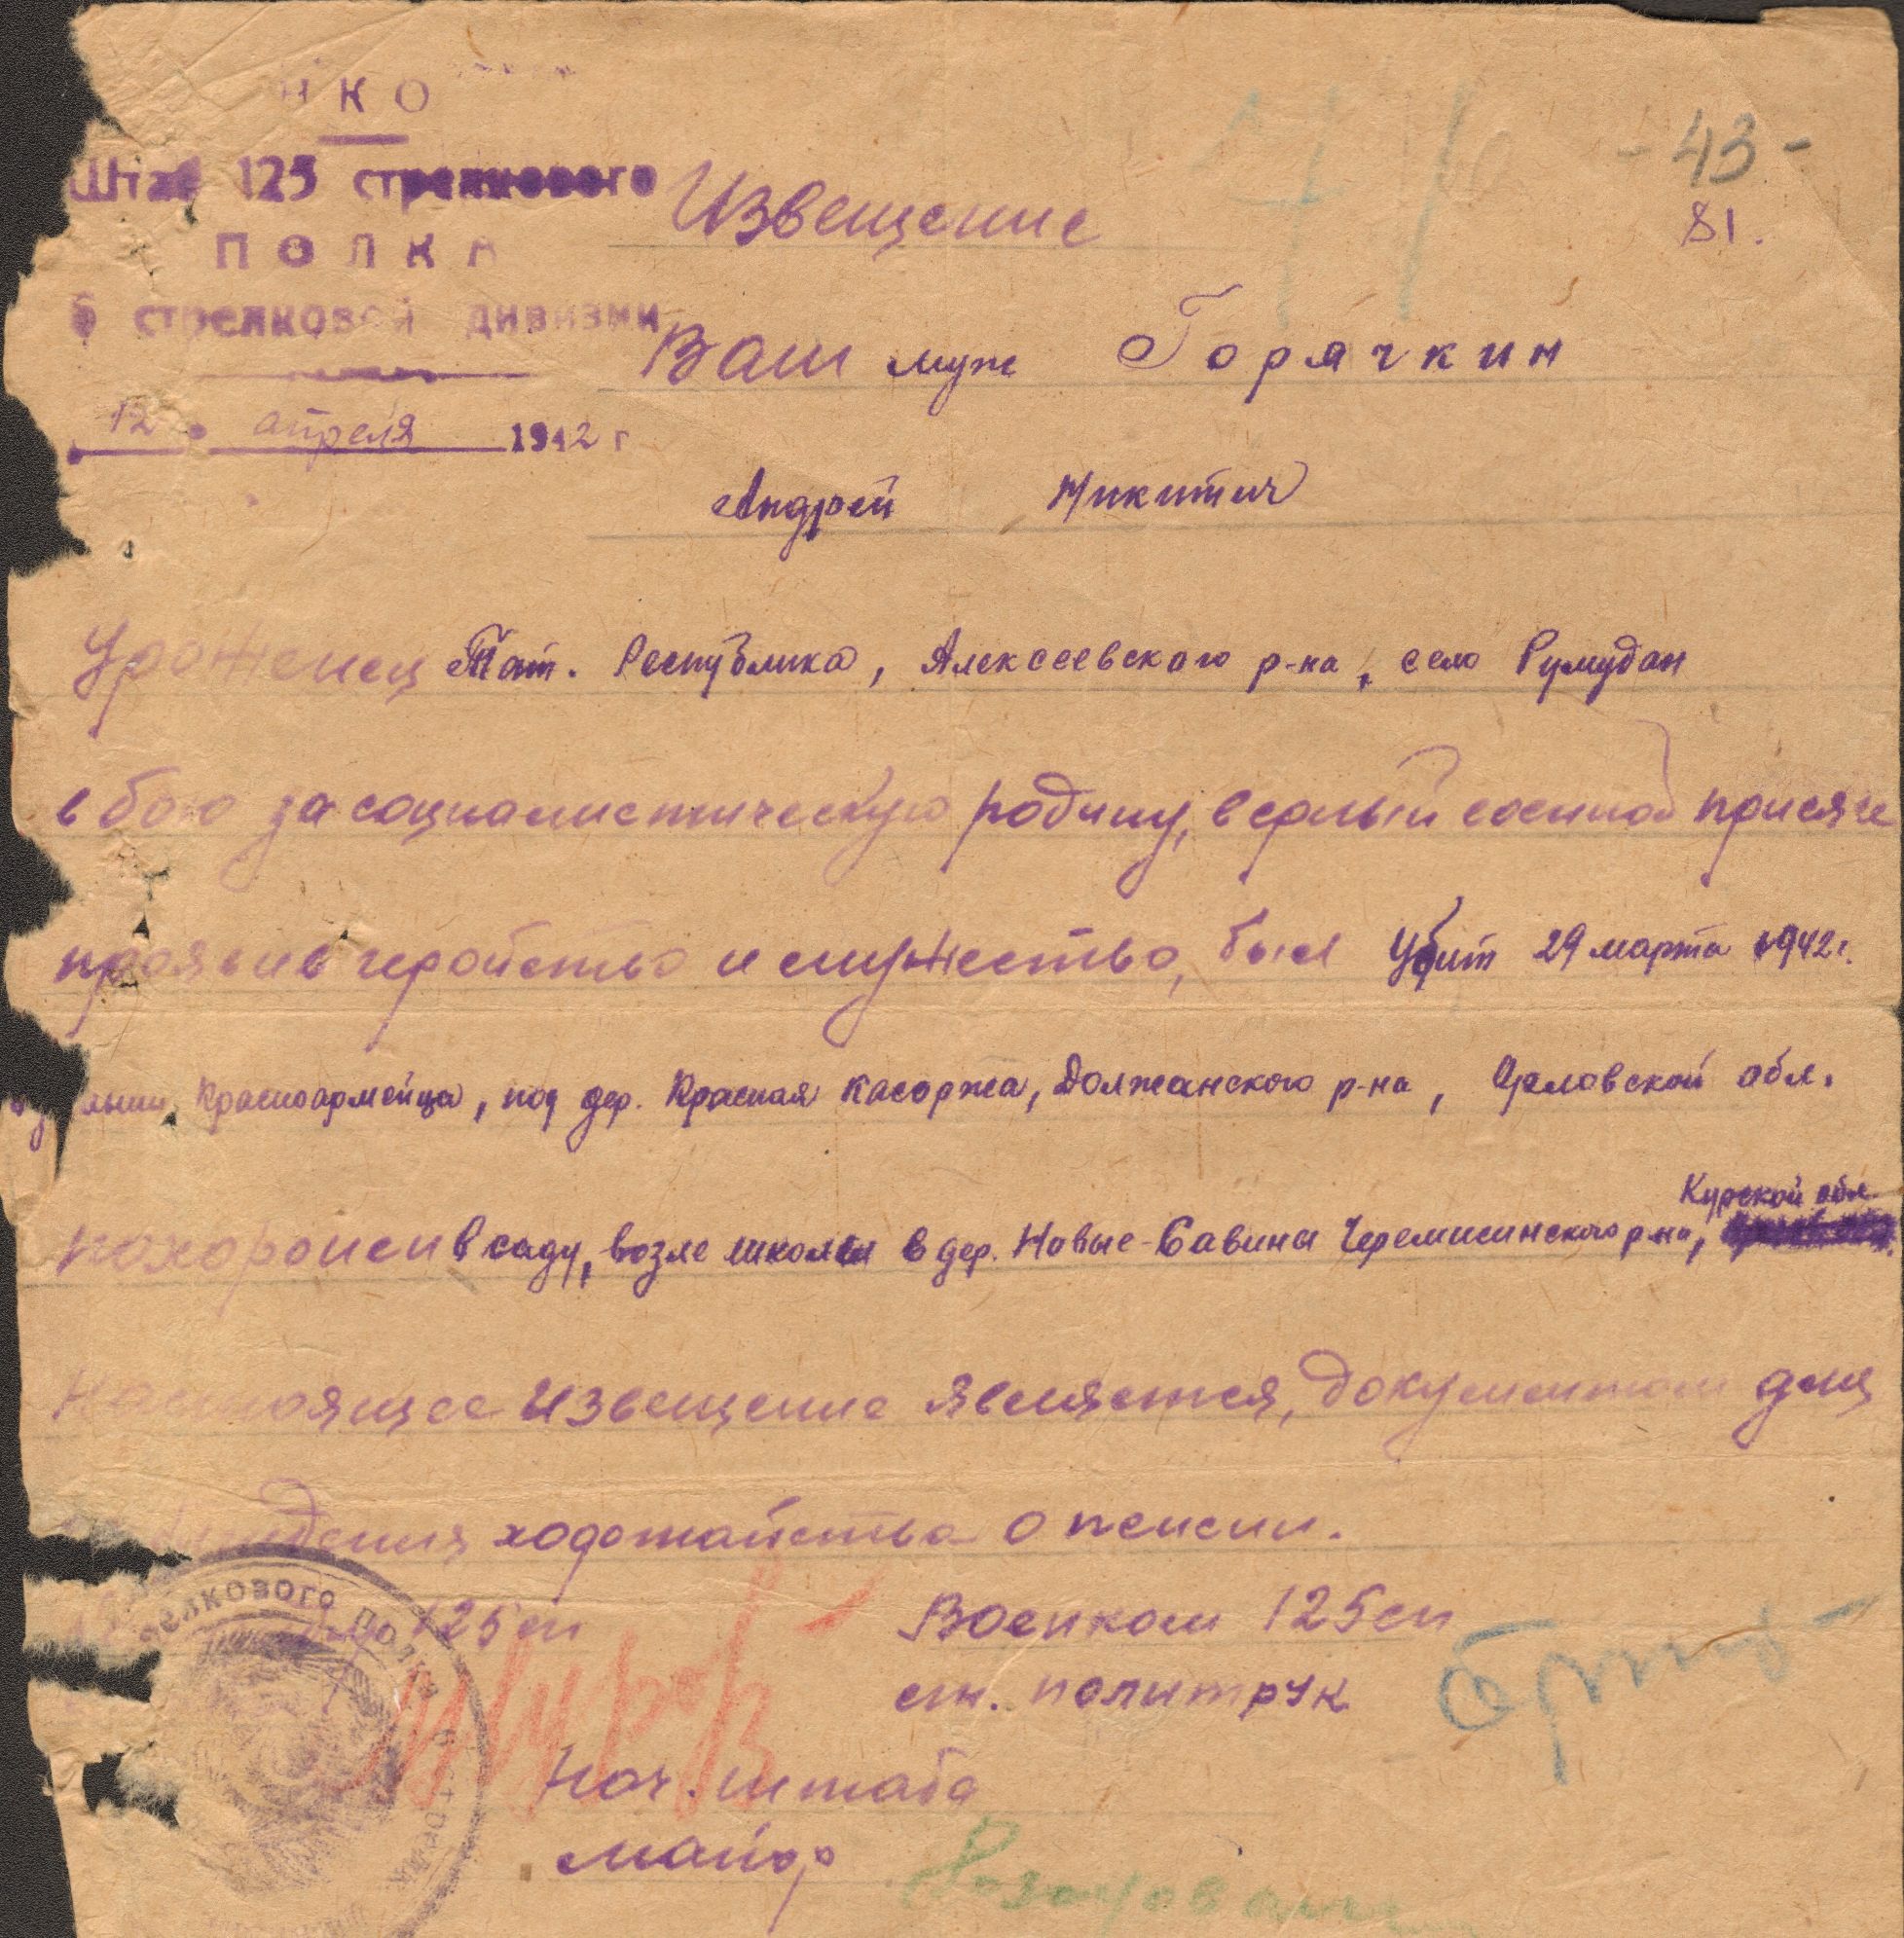 НКО
- 43 -
Штаб 125 стрелкового
81.
Извещение
полка
6 стрелковой дивизии
Ваш муж Горячкин
12 апреля 1942 г
Андрей Никитич
Уроженец Тат. Республика, Алексеевского р-на, село Румудан
в бою за социалистическую родину, верный военной присяге
проявив геройство и мужество, был убит 29 марта 1942 г.
Красноармейца, под дер. Красная Касоржа, Должанского р-на, Орловской обл.
Курской обл.
похоронен в саду, возле школы в дер. Новые-Савины Черемисинского р-на,
Настоящее извещение является, документом для
ходотайства о пенсии.
125 сп
Военком 125 сп
ст. политрук
Нач. штаба
майор
стрелкового полка 6 стрелк